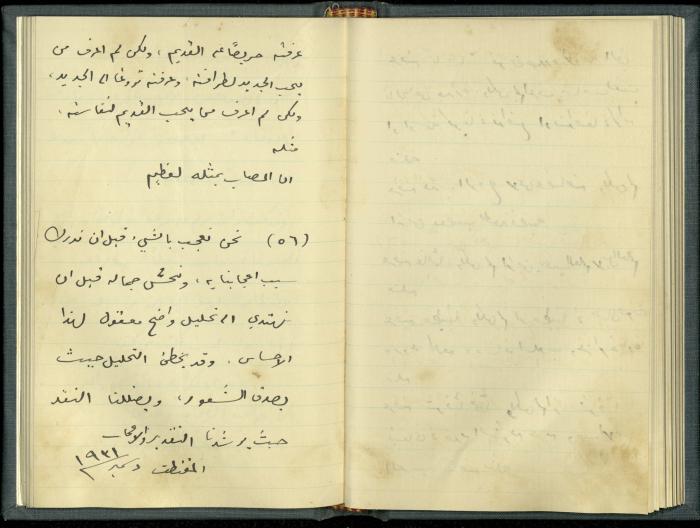 عرفته حريصًا على القديم، ولكن لم اعرف من
يحب الجديد لطرافته، وعرفته نزوعًا الى الجديد،
ولكن لم اعرف من يحب القديم لنفاسته،
مثله
ان المصاب بمثله لعظيم
(٥٦) نحن نعجب بالشيء قبل ان ندرك
سبب اعجابنا به، ونحس جماله قبل ان
نهتدي الى تحليل واضح معقول لهذا
الاحساس. وقد يخطئ التحليل حيث
يصدق الشعور، ويضللنا النقد
حيث يرشدنا التقدير والاعجاب
المقتطف ديسمبر ١٩٣١